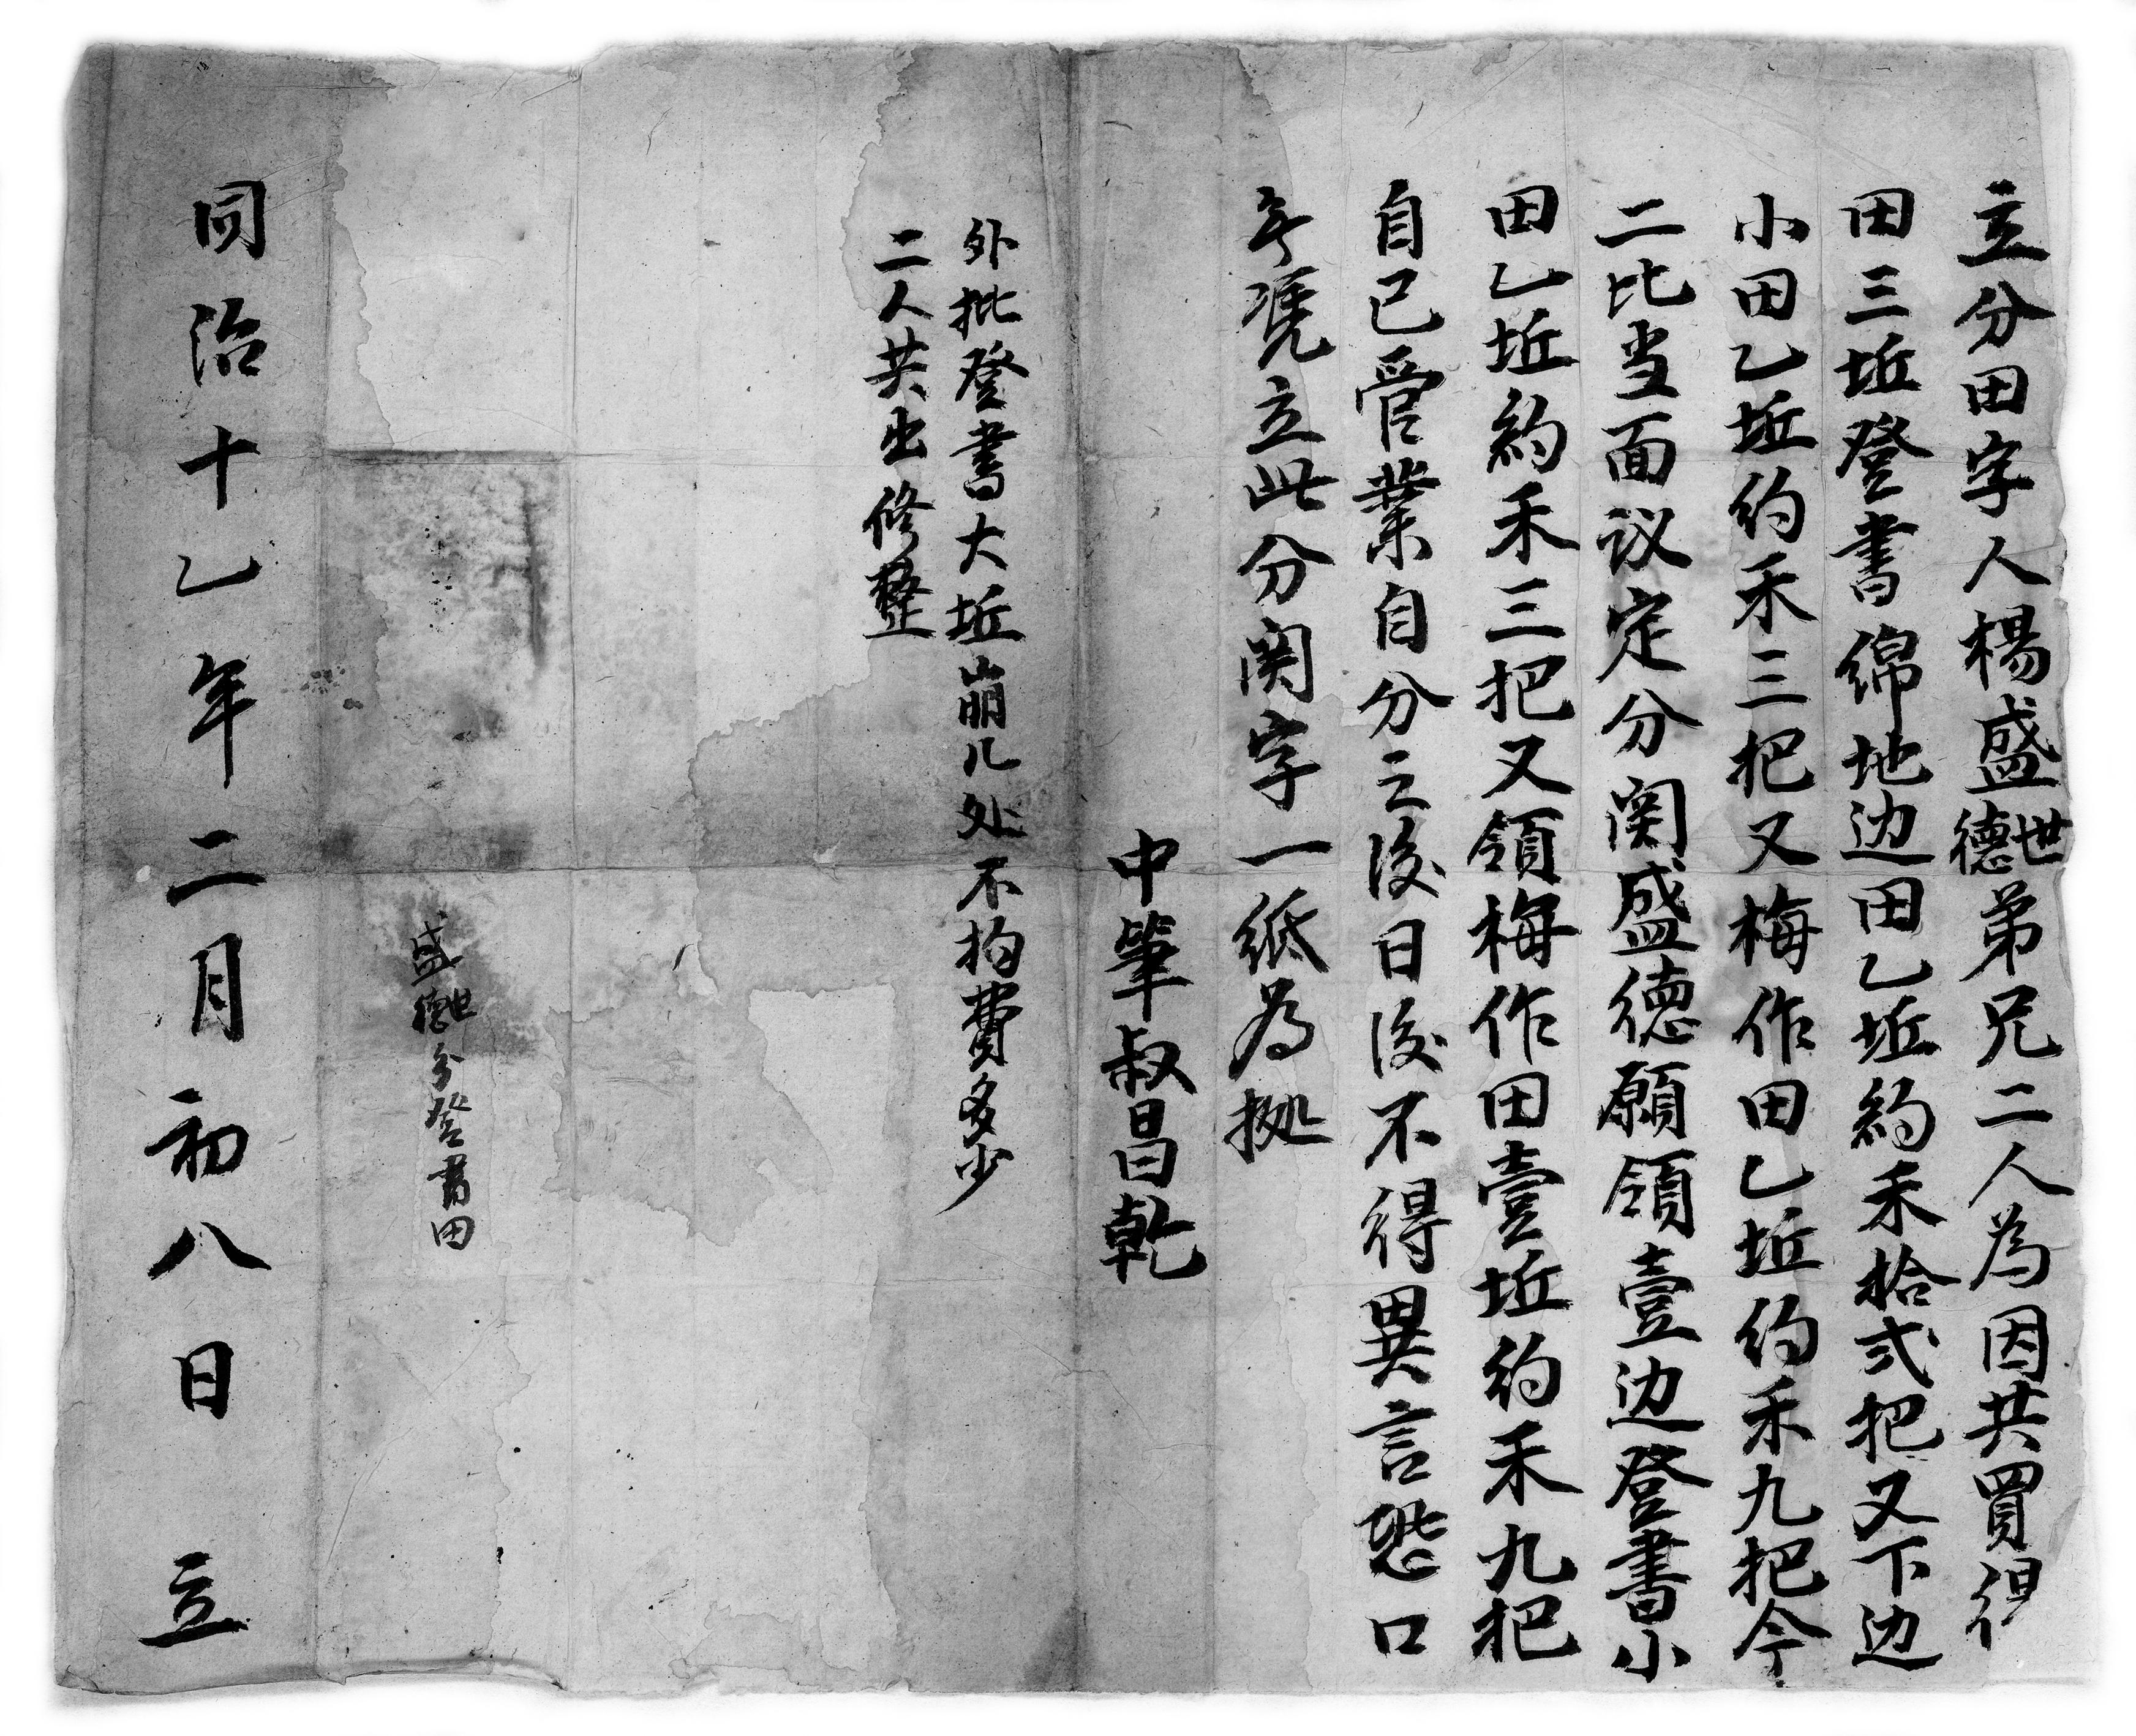 立分田字人楊盛世德弟兄二人為因共買得
田三坵登書綿地边田乙坵約禾拾弍把又下边
小田乙坵约禾三把又梅作田乙坵约禾九把今
二比当面议定分関盛德願領壹边登書小
田乙坵約禾三把又領梅作田壹坵约禾九把
自已管業自分之後日後不得異言恐口
無凴立此分関字一紙為拠
中筆叔昌乾
外批登書大坵崩几处不拘費多少
二人共出修整
盛世德分登書田
同治十乙年二月初八日立